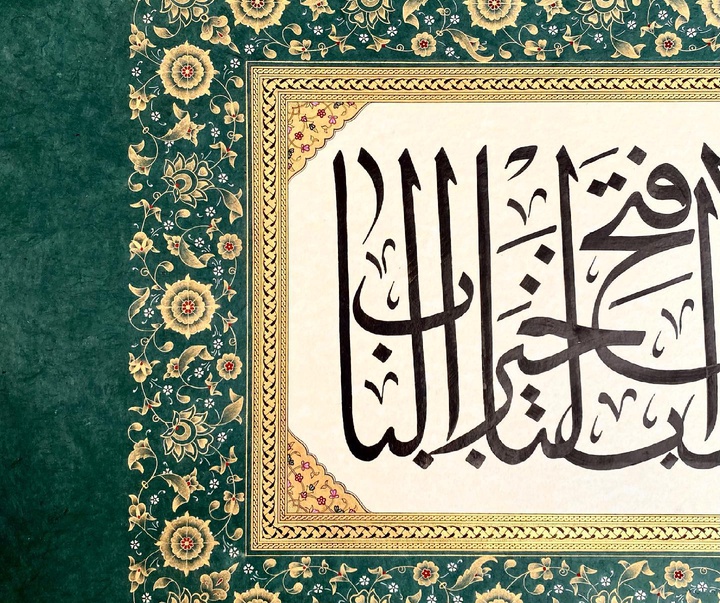 افتح لنا خير الباب